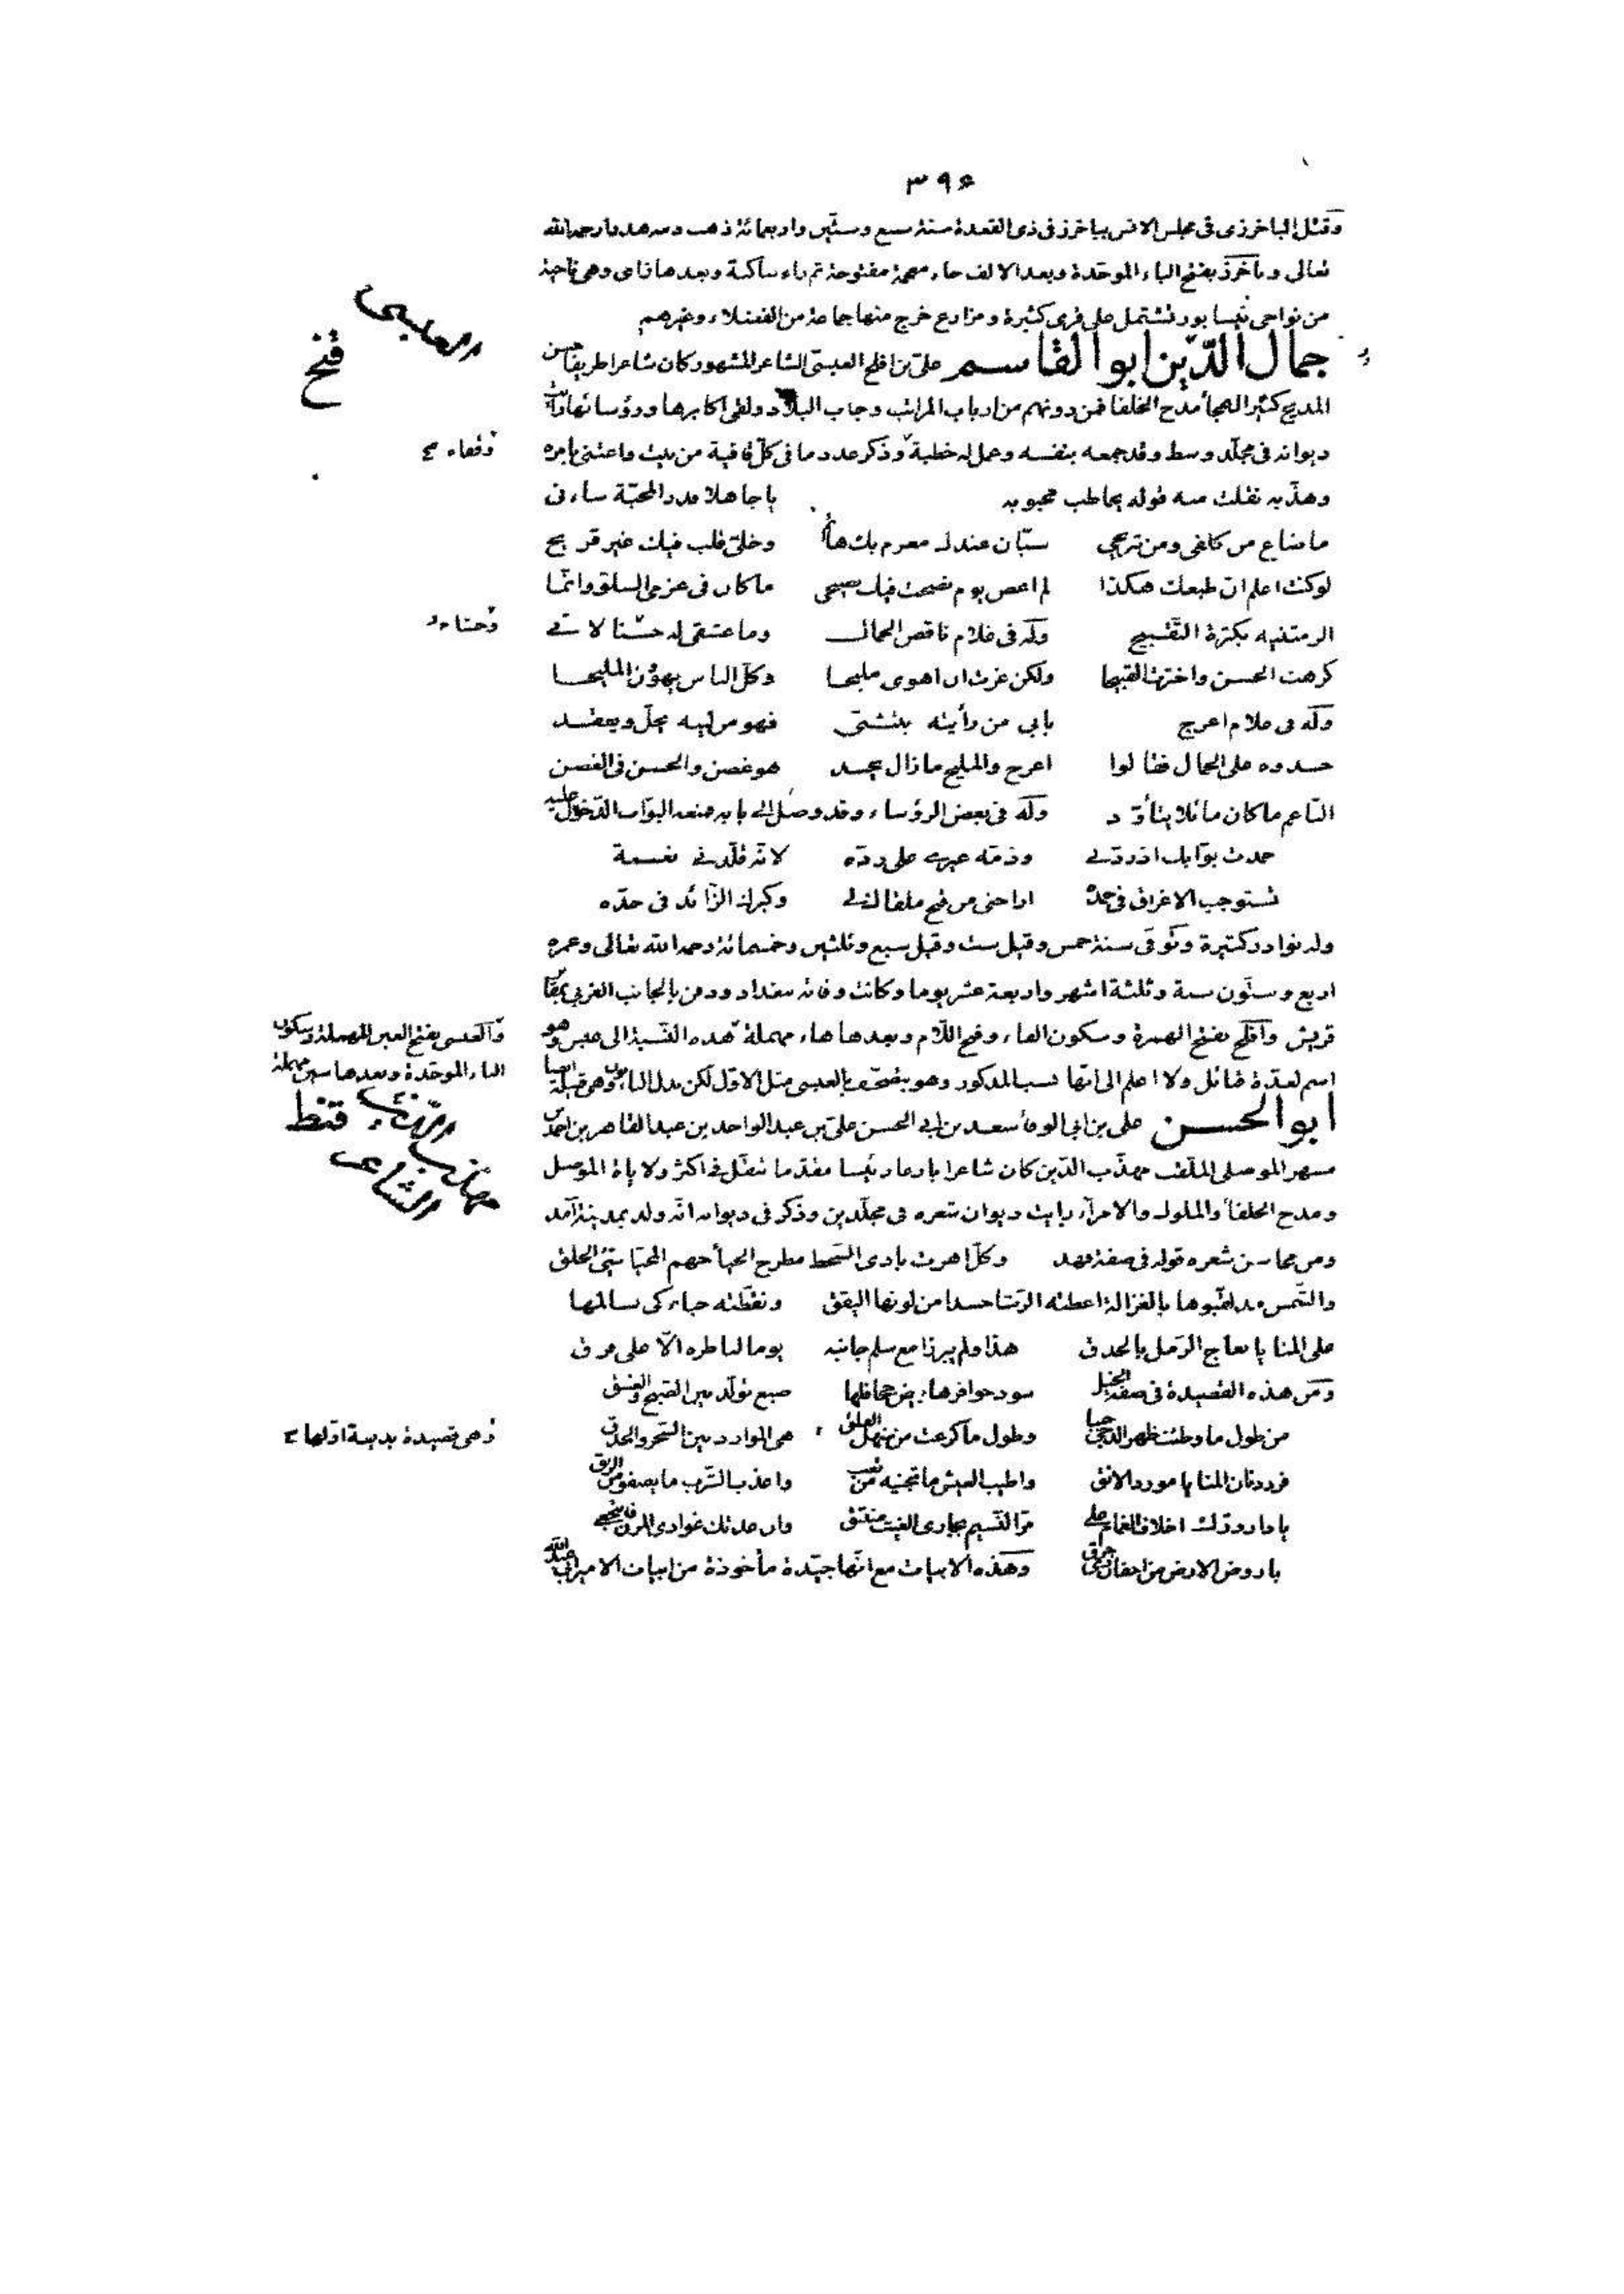 ٣٩٤
وقتل الباخرزى فى مجلس الانس بباخرز فى ذى القعدة سنة سبع وستين واربعمائة ذهب دمه هدرا رحمه الله
تعالى وباخرز بفتح الباء الموحدة وبعد الالف خاء معجمة مفتوحة ثم راء ساكنة وبعدها زاى وهى ناحية
من نواحى نيسابور تشتمل على قرى كثيرة ومزارع خرج منها جماعة من الفضلاء وغيرهم
جمال الدين ابو القاسم على بن افلح العبسى الشاعر المشهور كان شاعرا ظريفا حسن
العبسى
فتح
المديح كثير الهجا مدح الخلفا فمن دونهم من ارباب المراتب وجاب البلاد ولقى اكابرها ورؤسائها رأيت
ديوانه فى مجلد وسط وقد جمعه بنفسه وعمل له خطبة وذكر عدد ما فى كل قافية من بيت واعتنى بامره
وهذبه نقلت منه قوله يخاطب محبوبه يا جاهلا قدر المحبة ساءنى
ما ضاع من كلفى ومن تبريحى سيان عندك مغرم بك هائم وخلى قلب فيك غير قريح
لو كنت اعلم ان طبعك هكذا لم اعص يوم نصحت فيك نصيحى ما كان فى عزمى السلو وانما
الزمتنيه بكثرة التقبيح وله فى غلام ناقص الجمال وما عشقى له حسنا لانى
كرهت الحسن واخترت القبيحا ولكن غرت ان اهوى مليحا وكل الناس يهوون المليحا
وله فى غلام اعرج بابى من رأيته يتثنى فهو من لينه يحل ويعقد
حسدوه على الجمال فقالوا اعرج والمليح ما زال يحسد هو غصن والحسن فى الغصن
الناعم ما كان مائلا يتأود وله فى بعض الرؤساء وقد وصل الى بابه فمنعه البواب الدخول عليه
حمدت بوابك اذ ردنى وذمه غيرى على رده لانه قلدنى نعمة
تستوجب الاغراق فى حمده اراحنى من قبح ملقاك لى وكبرك الزائد فى حده
وله نوادر كثيرة وتوفى سنة خمس وقيل ست وقيل سبع وثلثين وخمسمائة رحمه الله تعالى وعمره
اربع وستون سنة وثلثة اشهر واربعة عشر يوما وكانت وفاته ببغداد ودفن بالجانب الغربى بمقابر
قريش وافلح بفتح الهمزة وسكون الفاء وفتح اللام وبعدها حاء مهملة هذه النسبة الى عبس وهو
والعبسى بفتح العين المهملة وسكون
الباء الموحدة وبعدها سين مهملة
اسم لعدة قبائل ولا اعلم الى ايها نسب المذكور وهو يتصحف بالعيسى مثل الاول لكن بدل الباء نون وهى قبيلة ايضا
ابو الحسن على بن ابى الوفا سعد بن ابى الحسن على بن عبد الواحد بن عبد القاهر بن احمد بن
مهذب
الشاعر
مسهر الموصلى الملقب مهذب الدين كان شاعرا بارعا رئيسا مقدما تنقل فى اكثر ولاياة الموصل
ومدح الخلفا والملوك والامرآء رايت ديوان شعره فى مجلدين وذكر فى ديوانه انه ولد بمدينة آمد
ومن محاسن شعره قوله فى صفة فهد وكل اهرت بادى السخط مطرح الحيا جهم المحيا سيئ الخلق
والشمس مذ لقبوها بالغزالة اعطته الرشا حسدا من لونها اليقق ونقطته حباء كى يسالمها
على المنايا نعاج الرمل بالحدق هذا ولم يبرزا مع سلم جانبه يوما لناظره الا على فرق
ومن هذه القصيدة فى صفة الخيل سود حوافرها بيض جحافلها صبغ تولد بين الصبح والغسق
من طول ما وطئت ظهر الدجى خببا وطول ما كرعت من منهل الفلق هى الموارد بين السحر والحدق
وهى قصيدة بديعة اولها
فردن ان المنايا مورد الانق واطيب العيش ما تجنيه من تعب واعذب الشرب ما يصفو من الرنق
يا دار درت اخلاف الغمام على مر النسيم مجارى الغيث منبثق وان عدتك غوادى المزن فانتجعى
يا روض الارض من اجفان حرقى وهذه الابيات مع انها جيدة مأخوذة من ابيات الامير ابى عبد الله